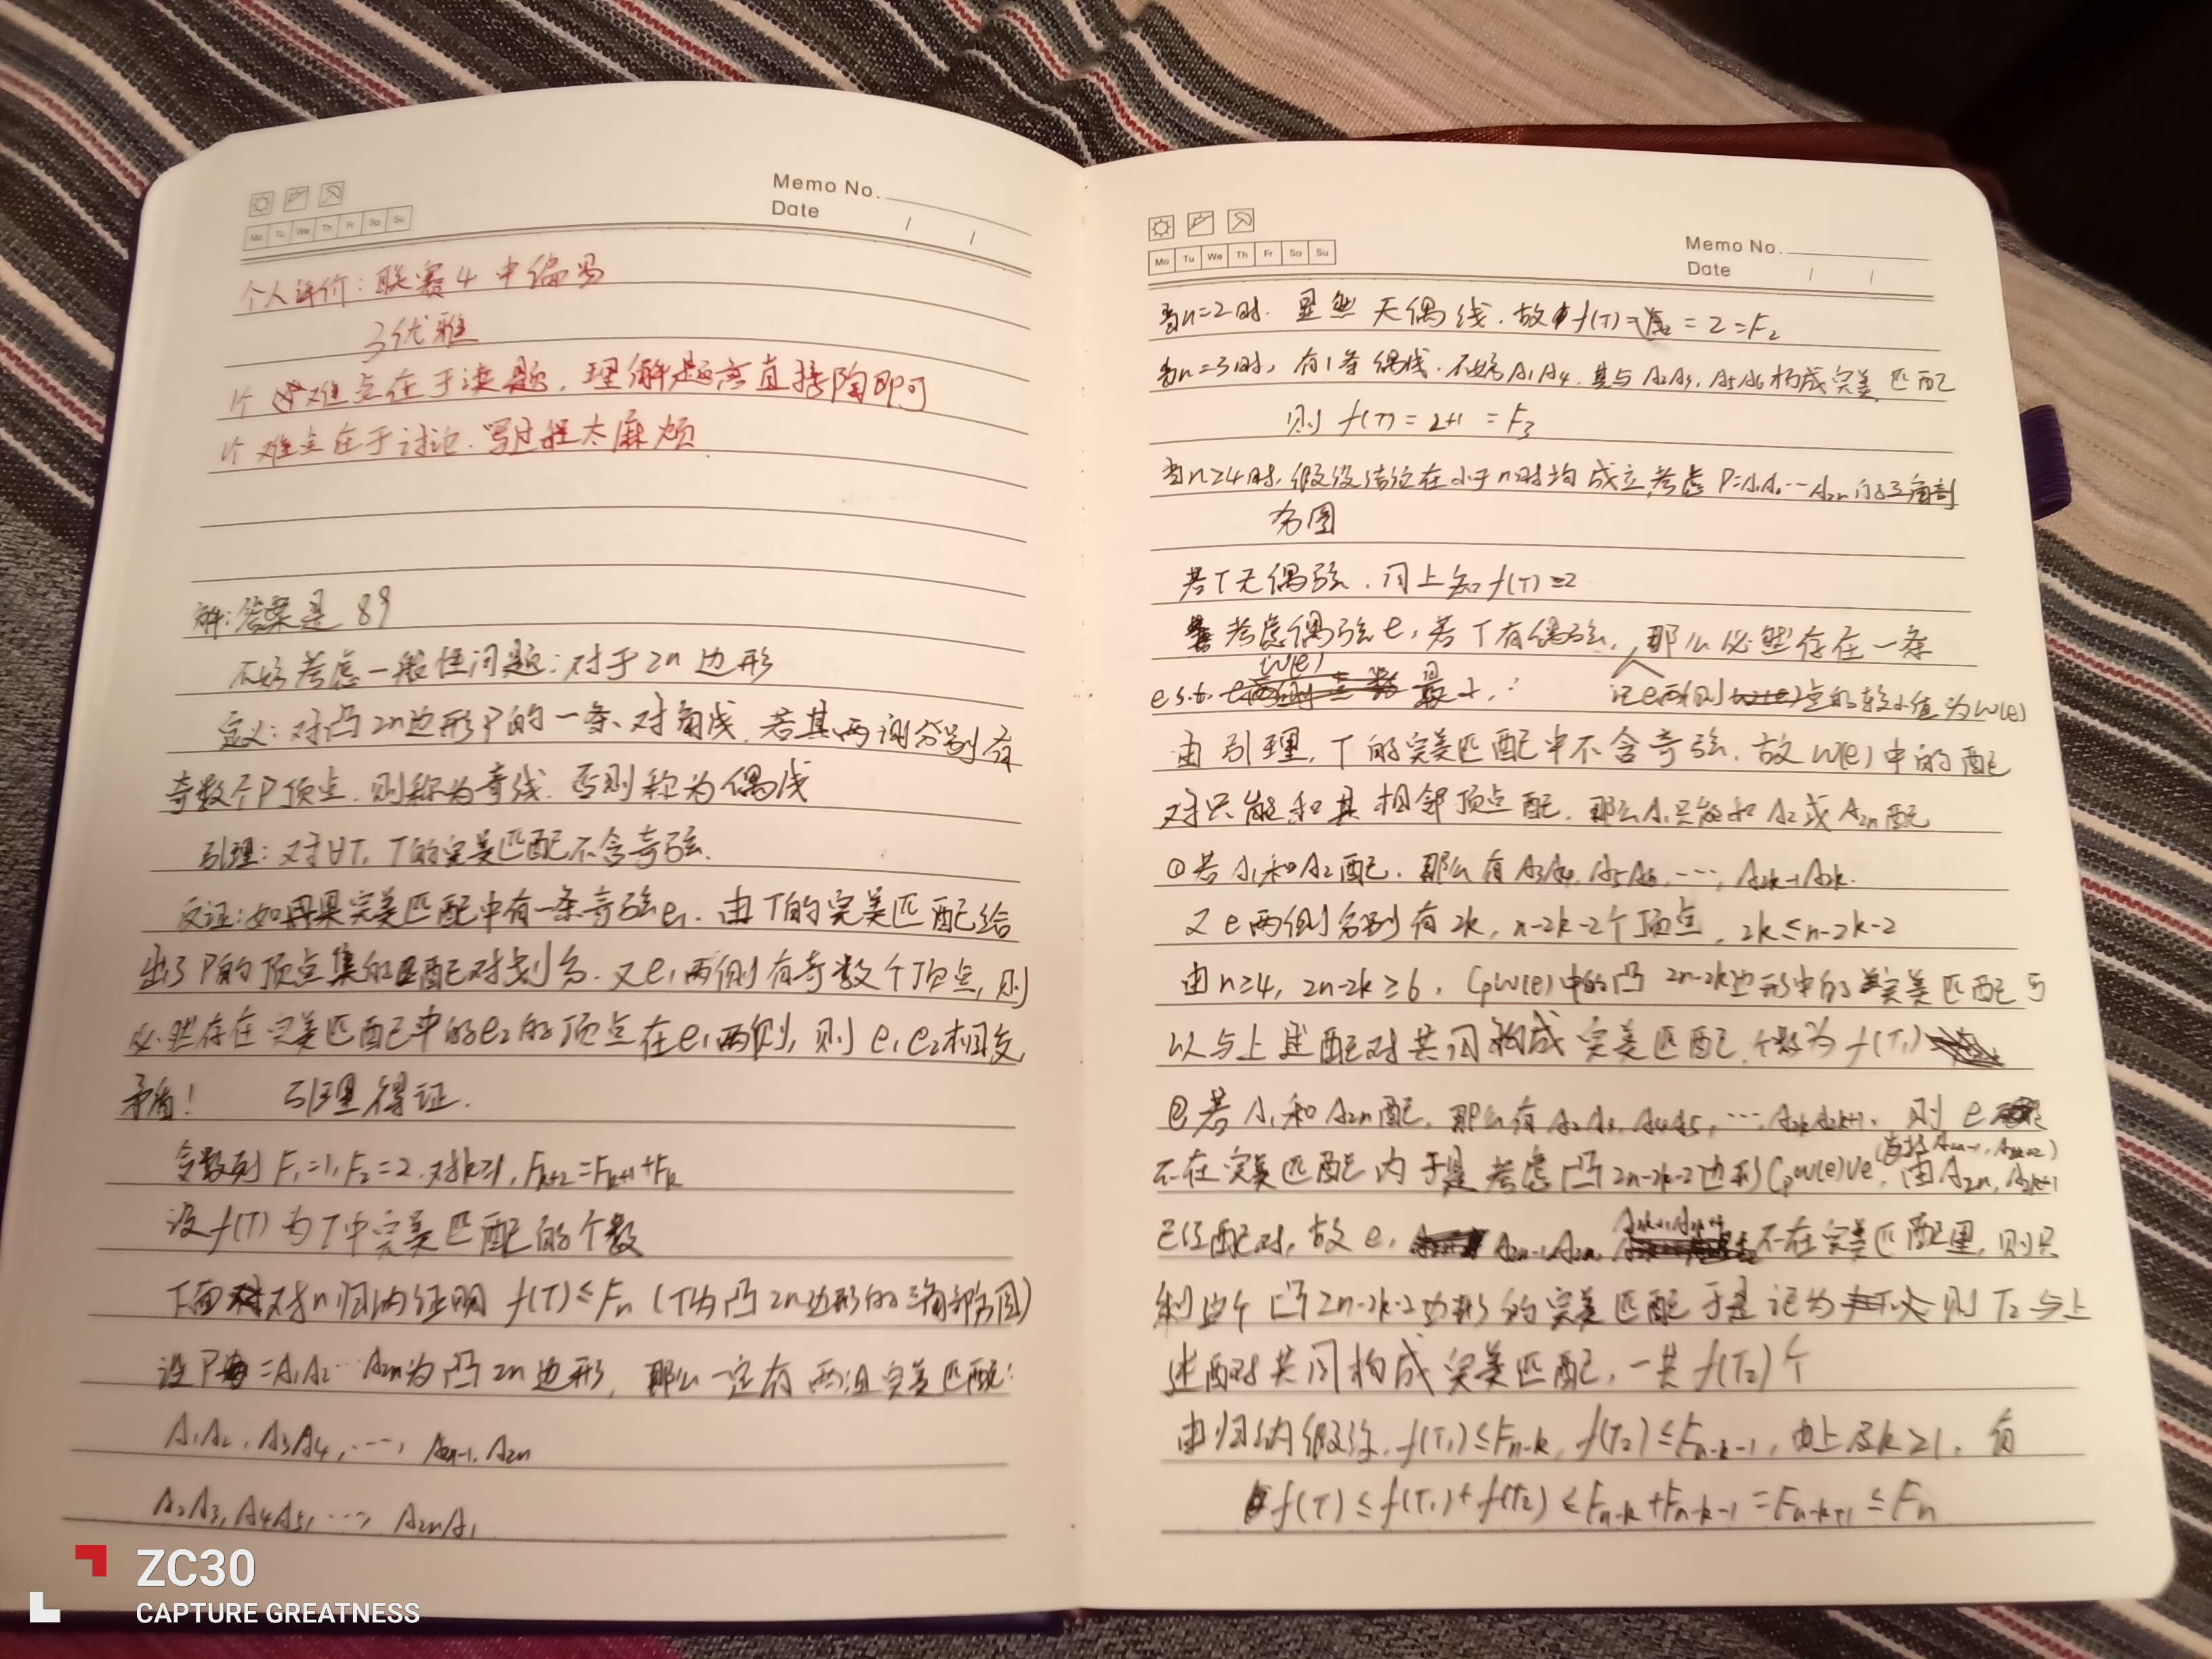 Memo No.
Date / /
Mo Tu We Th Fr Sa Su
个人评价：联赛4中偏易
3优雅
1个 难点在于读题，理解题意直接陶即可
1个 难点在于讨论，写过程太麻烦
解：答案是 89
不妨考虑一般性问题：对于2n边形
定义：对凸2n边形P的一条对角线，若其两侧分别有
奇数个P顶点，则称为奇线，否则称为偶线
引理：对∀T，T的完美匹配不含奇弦.
反证：如果完美匹配中有一条奇弦e₁，由T的完美匹配给
出了P的顶点集的匹配对划分，又e₁两侧有奇数个顶点，则
必然存在完美匹配中的e₂的顶点在e₁两侧，则e₁e₂相交，
矛盾！ 引理得证.
令数列F₁=1, F₂=2. 对k≥1, Fₖ₊₂=Fₖ₊₁+Fₖ
设f(T)为T中完美匹配的个数
下面对n归纳证明 f(T)≤Fₙ (T为凸2n边形的三角剖分图)
设P=A₁A₂…A₂ₙ为凸2n边形，那么一定有两组完美匹配：
A₁A₂, A₃A₄, …, A₂ₙ₋₁A₂ₙ
A₂A₃, A₄A₅, …, A₂ₙA₁
Memo No.
Date / /
Mo Tu We Th Fr Sa Su
当n=2时. 显然无偶线. 故f(T)= = 2 = F₂
当n=3时，有1条偶线. 不妨A₁A₄. 其与A₂A₃, A₅A₆构成完美匹配
则 f(T) = 2+1 = F₃
当n≥4时，假设结论在小于n时均成立，考虑P=A₁A₂…A₂ₙ的三角剖
分图
若T无偶弦，同上知f(T)=2
考虑偶弦e，若T有偶弦，那么必然存在一条
e s.t. w(e) 最小， 记e两侧点的较小值为w(e)
由引理，T的完美匹配中不含奇弦，故w(e)中的配
对只能和其相邻顶点配，那么A₁只能和A₂或A₂ₙ配
①若A₁和A₂配，那么有A₃A₄, A₅A₆, …, A₂ₖ₋₁A₂ₖ.
又e两侧分别有2k, n-2k-2个顶点，2k≤n-2k-2
由n≥4, 2n-2k≥6, Cₚw(e)中的凸2n-2k边形中的完美匹配可
以与上述配对共同构成完美匹配，个数为f(T₁)
②若A₁和A₂ₙ配，那么有A₂A₃, A₄A₅, …, A₂ₖA₂ₖ₊₁. 则e
不在完美匹配内 于是考虑凸2n-2k-2边形Cₚw(e)∪e, 由A₂ₙ, A₂ₖ₊₁
已经配对，故e, A₂ₙ₋₁A₂ₙ, 不在完美匹配里，则只
剩这个凸2n-2k-2边形的完美匹配 于是记为 则T₂与上
述配对共同构成完美匹配，一共f(T₂)个
由归纳假设，f(T₁)≤Fₙ₋ₖ, f(T₂)≤Fₙ₋ₖ₋₁, 由上及k≥1，有
f(T)≤f(T₁)+f(T₂)≤Fₙ₋ₖ+Fₙ₋ₖ₋₁=Fₙ₋ₖ₊₁≤Fₙ
ZC30
CAPTURE GREATNESS